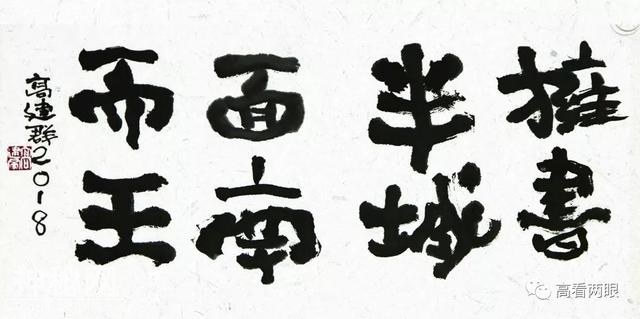 擁書
半城
面南
而王
高建群2018
高看两眼